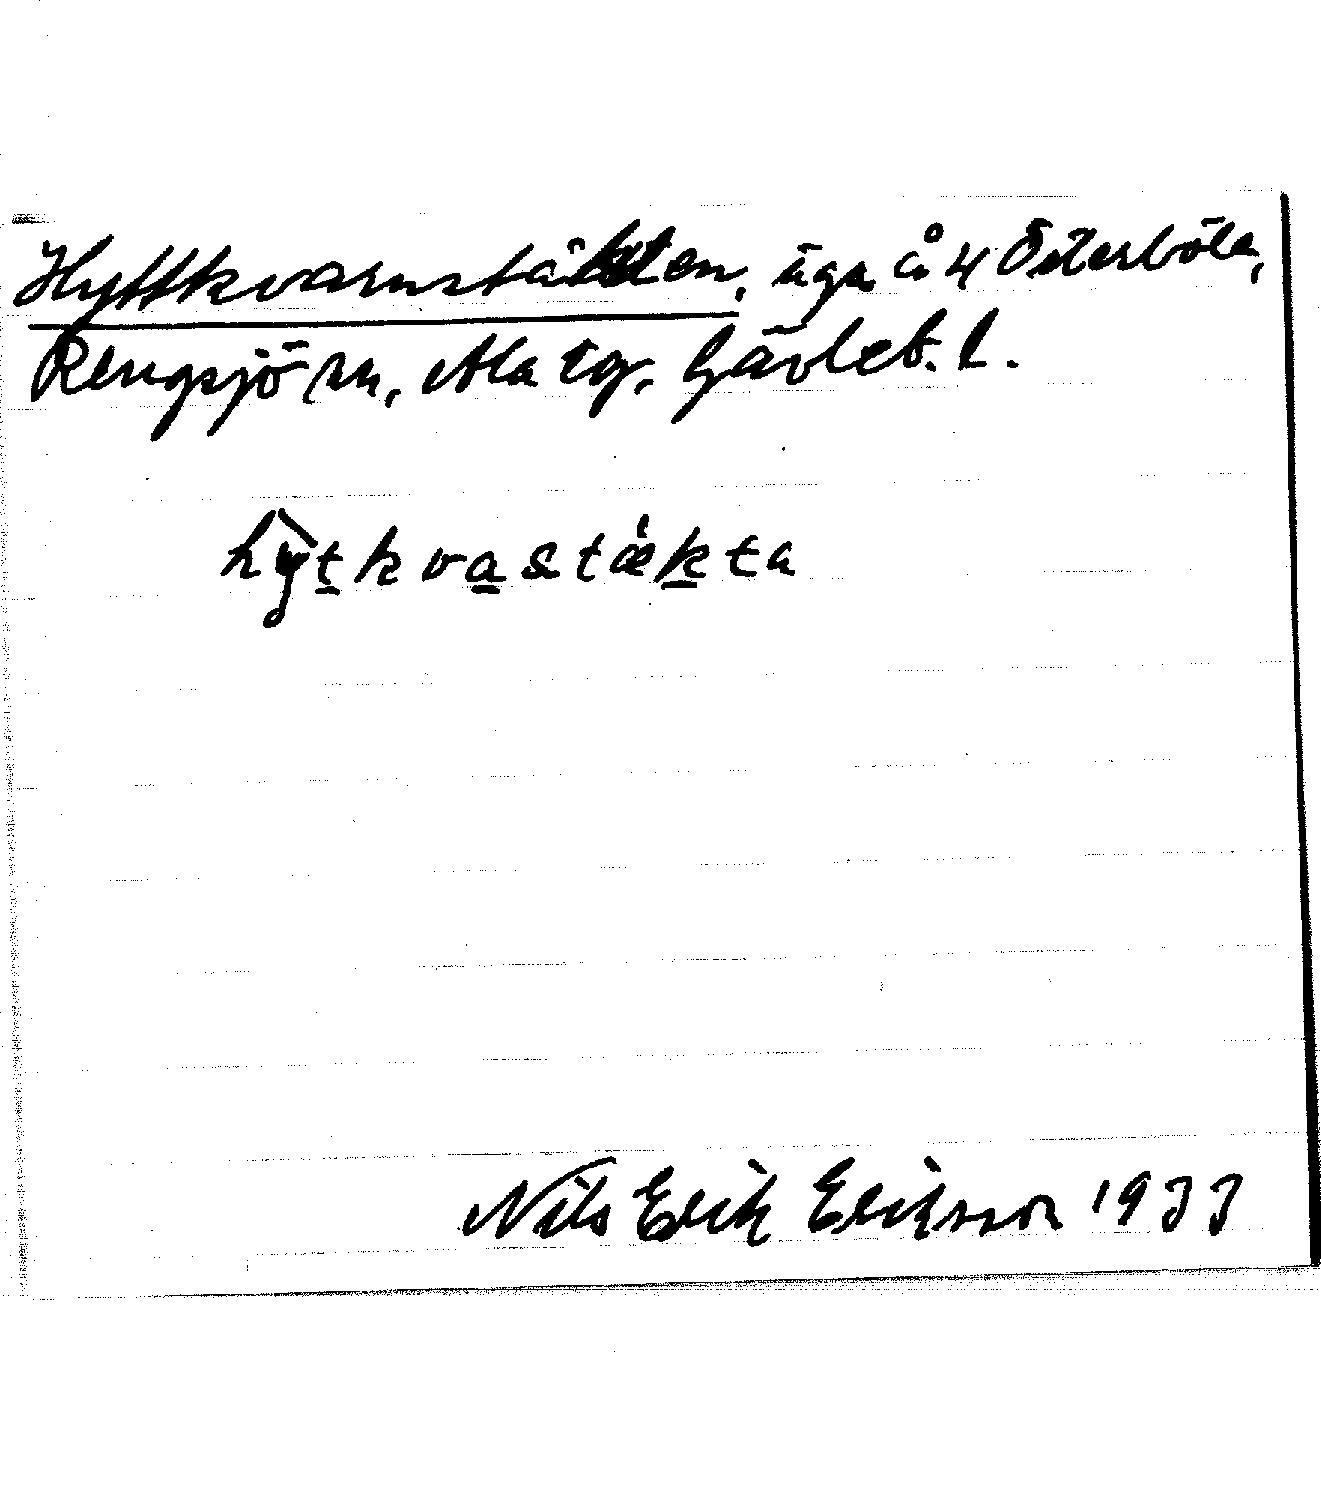 Hyttkvarnstäkten, äga å 4 Österböle,
Rengsjö sn, Ala tg, Gävleb. l.
hy̑tkvastǽkta
Nils Erik Eriksson 1933